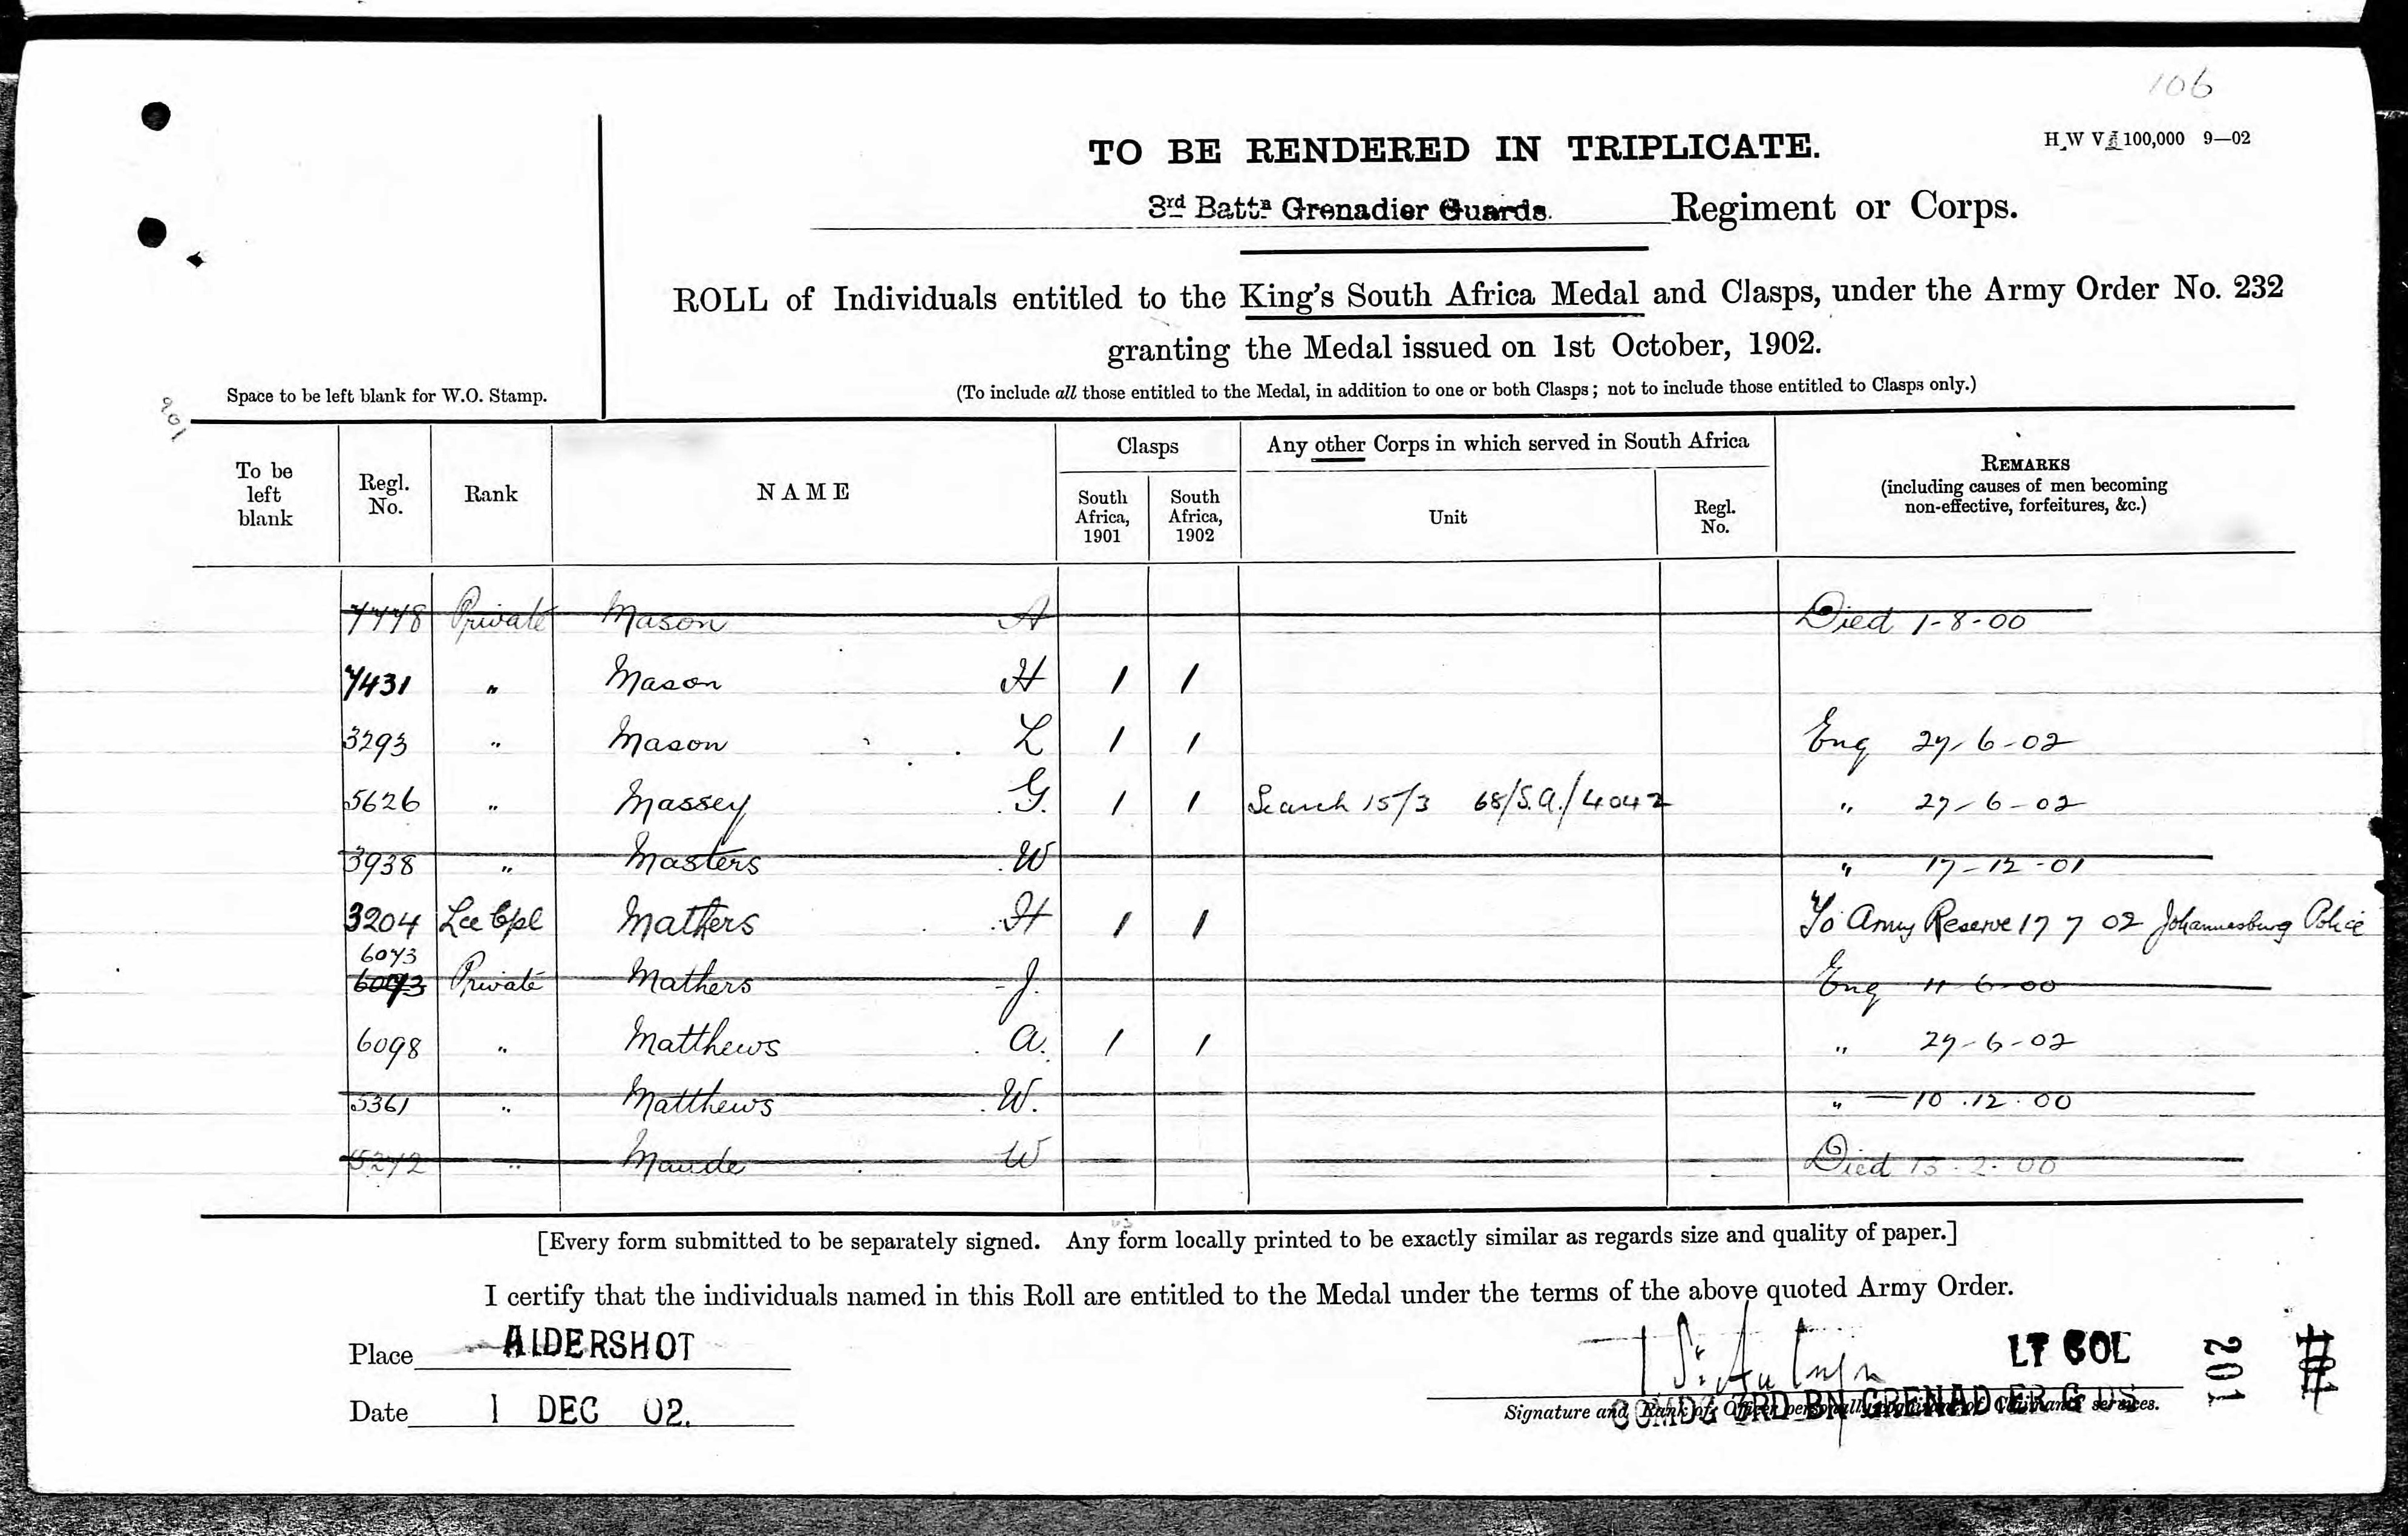 106
H W V 100,000 9—02
TO BE RENDERED IN TRIPLICATE.
3rd Battn Grenadier Guards. Regiment or Corps.
ROLL of Individuals entitled to the King's South Africa Medal and Clasps, under the Army Order No. 232
granting the Medal issued on 1st October, 1902.
Space to be left blank for W.O. Stamp.
(To include all those entitled to the Medal, in addition to one or both Clasps; not to include those entitled to Clasps only.)
To be left blank
Regl. No.
Rank
NAME
Clasps
South Africa, 1901
South Africa, 1902
Any other Corps in which served in South Africa
Unit
Regl. No.
REMARKS
(including causes of men becoming
non-effective, forfeitures, &c.)
7778 Private Mason A Died 1-8-00
7431 " Mason H 1 1
3293 " Mason L 1 1 Eng 27-6-02
5626 " Massey G. 1 1 Search 15/3 68/S.A./4042 " 27-6-02
3938 " Masters W " 17-12-01
3204 Lce Cpl Mathers H 1 1 To Army Reserve 17 7 02 Johannesburg Police
6073
6093 Private Mathers J. Eng 11-6-00
6098 " Matthews A. 1 1 " 27-6-02
5361 " Matthews W. " 10.12.00
5272 " Maude W Died 15.2.00
[Every form submitted to be separately signed. Any form locally printed to be exactly similar as regards size and quality of paper.]
I certify that the individuals named in this Roll are entitled to the Medal under the terms of the above quoted Army Order.
Place ALDERSHOT
LT COL
Date 1 DEC 02.
COMDG 3RD BN GRENADIER GDS
Signature and Rank of Officer personally cognizant of Claimants' services.
201